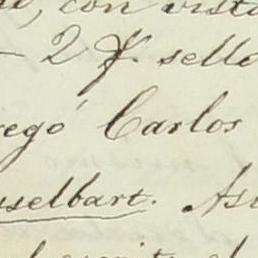 , con vista
- 2 f. sello
egó Carlos
sselbart. As